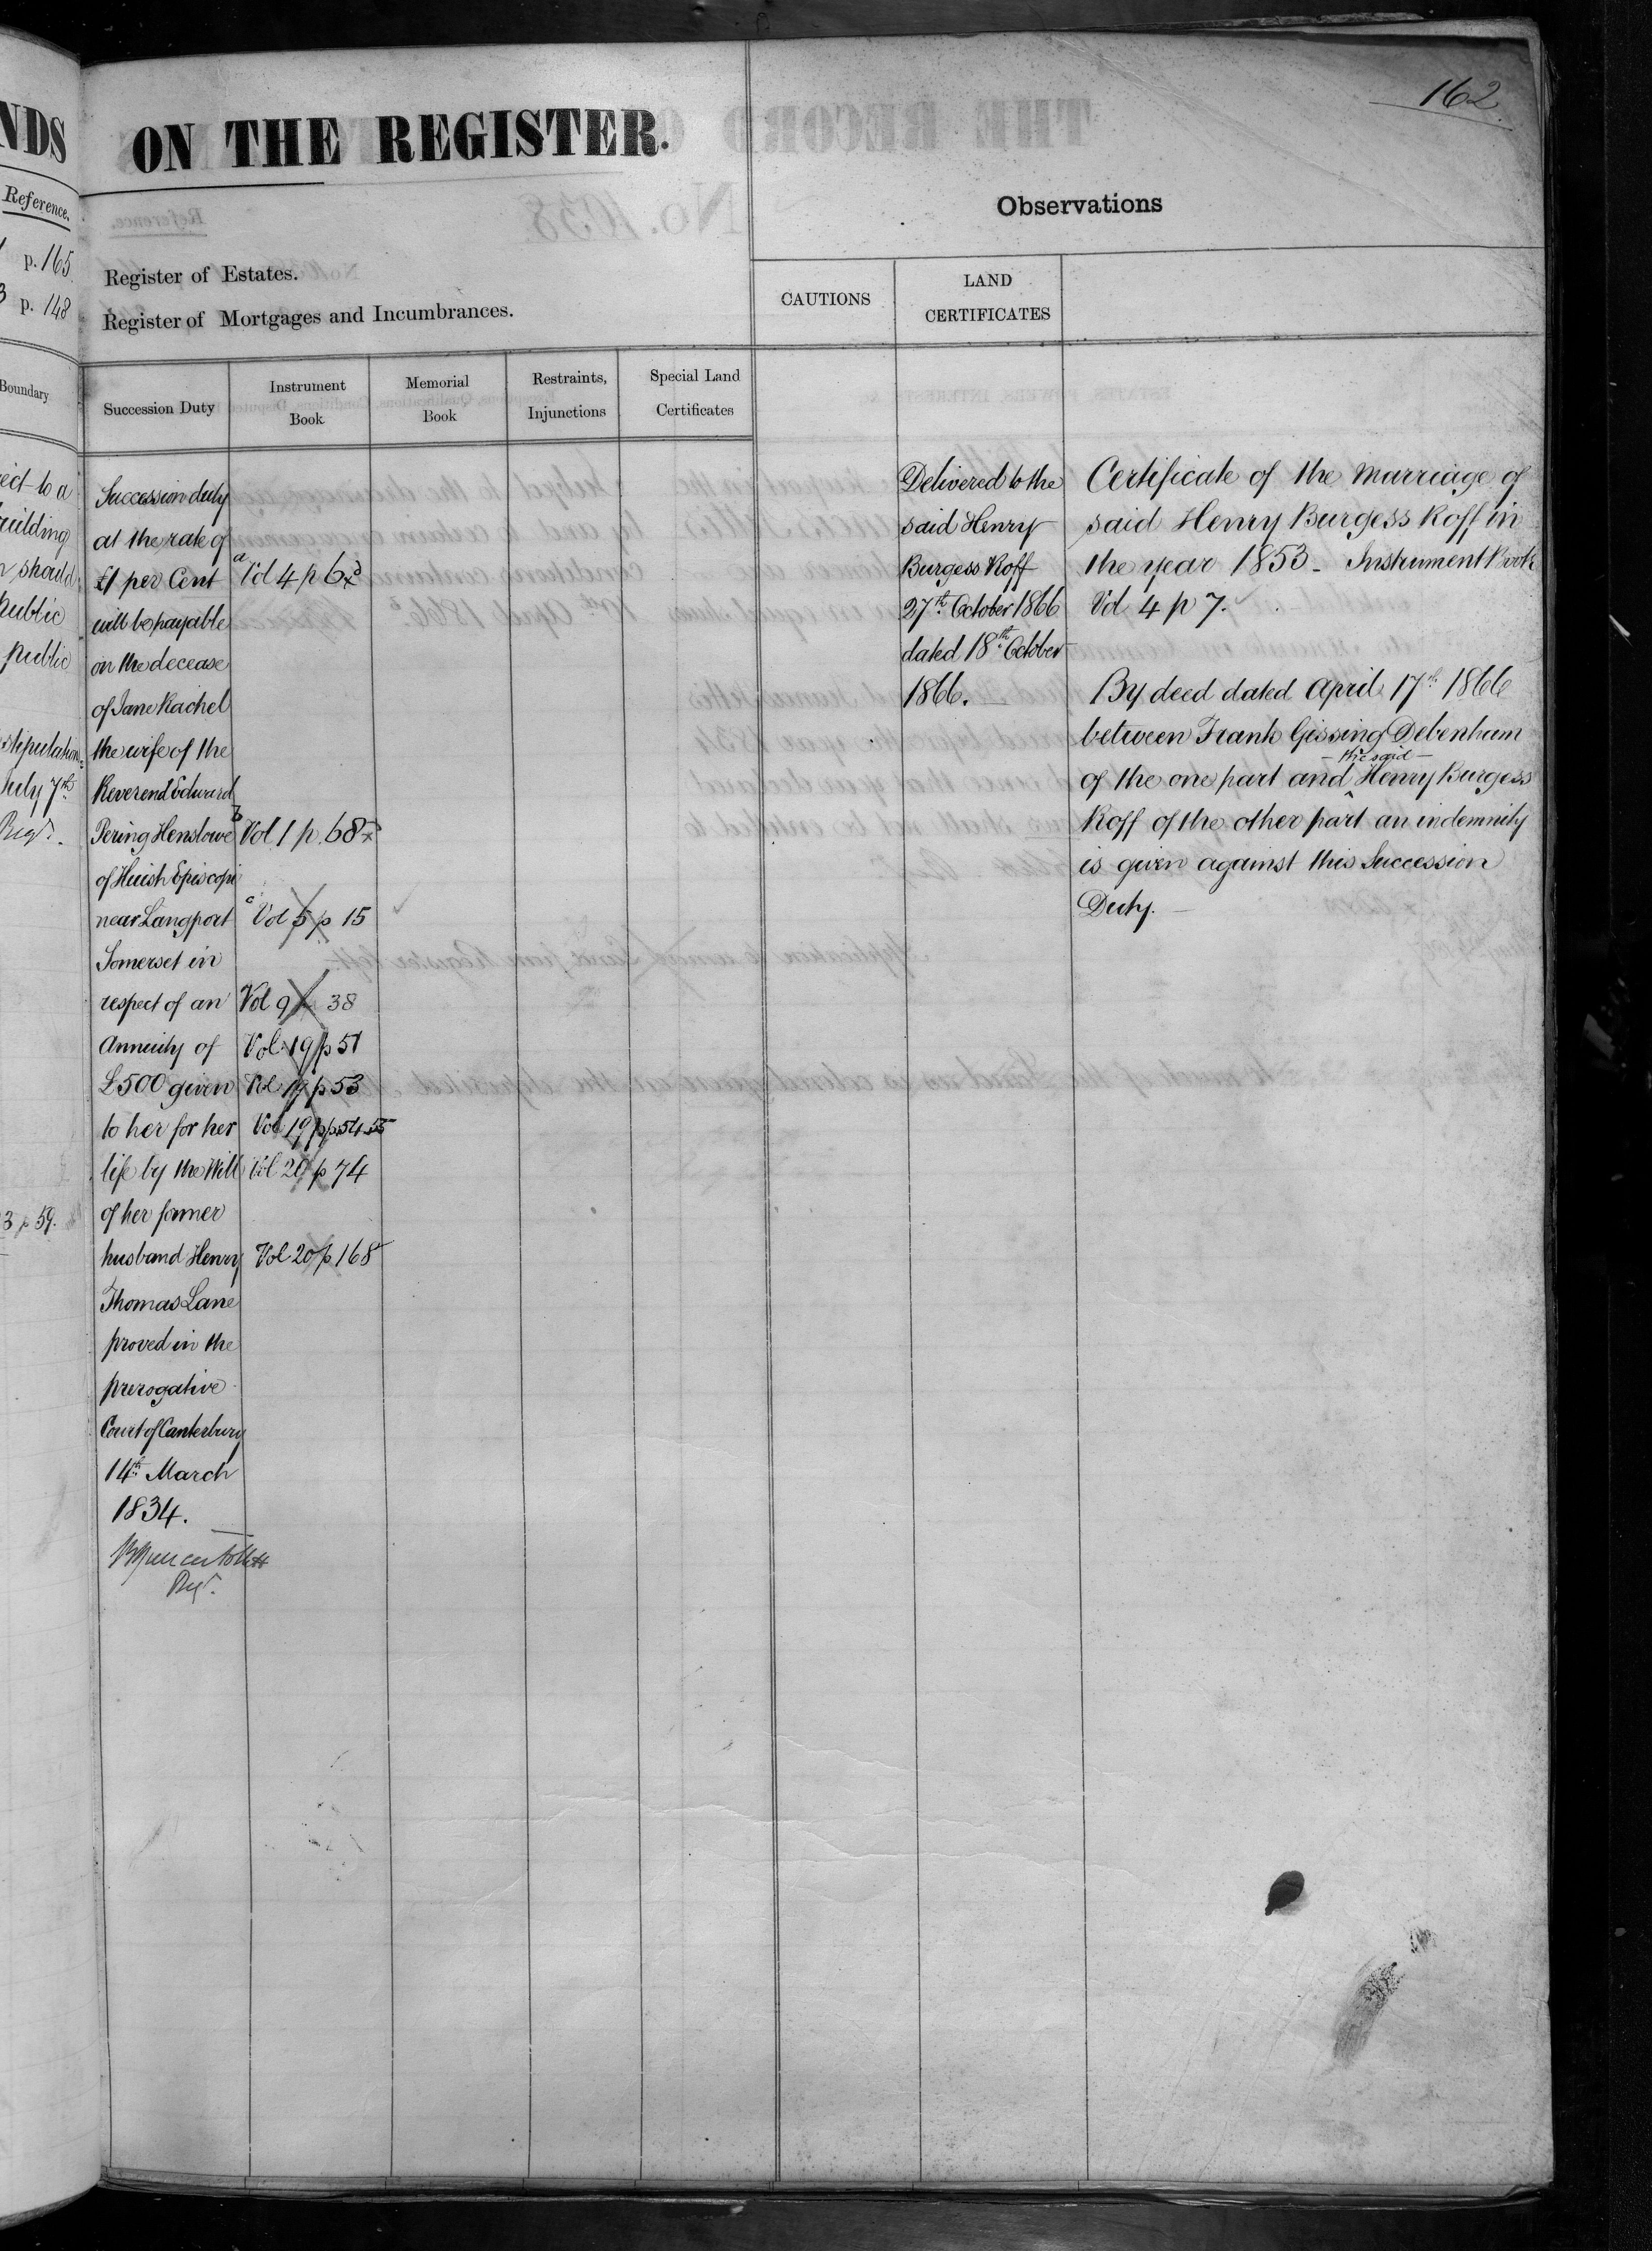 NDS
Reference.
p. 165
p. 148
Boundary
ect to a
uilding
should
public
public
stipulation
July 7th
Regr.
3 p 59.
162
ON THE REGISTER.
Observations
Register of Estates.
Register of Mortgages and Incumbrances.
CAUTIONS
LAND
CERTIFICATES
Succession Duty
Instrument
Book
Memorial
Book
Restraints,
Injunctions
Special Land
Certificates
Succession duty
at the rate of
£1 per Cent
will be payable
on the decease
of Jane Rachel
the wife of the
Reverend Edward
Pering Henslowe
of Huish Episcopi
near Langport
Somerset in
respect of an
Annuity of
£500 given
to her for her
life by the Will
of her former
husband Henry
Thomas Lane
proved in the
prerogative
Court of Canterbury
14th March
1834.
Regr.
a Vol 4 p 6
b Vol. 1 p. 68
c Vol 5 p 15
Vol 9 p 38
Vol 19 p 51
Vol 19 p 53
Vol 19 pp 54.55
Vol 20 p 74
Vol 20 p 168
Delivered to the
said Henry
Burgess Koff
27th October 1866
dated 18th October
1866.
Certificate of the marriage of
said Henry Burgess Koff in
the year 1853 - Instrument Book
Vol 4 p 7.
By deed dated April 17th 1866
between Frank Gissing Debenham
of the one part and ^ the said Henry Burgess
Koff of the other part an indemnity
is given against this Succession
Duty.